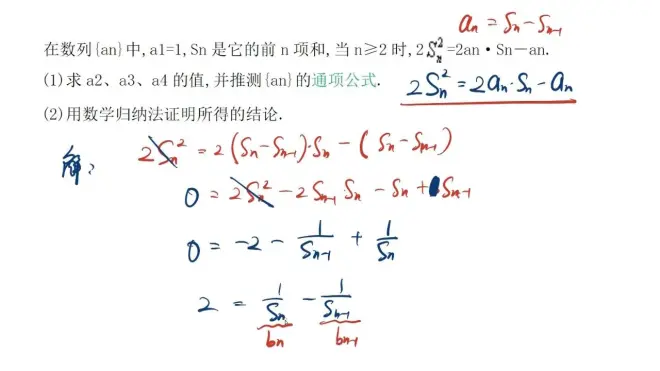 an = Sn - Sn-1
在数列{an}中,a1=1,Sn 是它的前 n 项和,当 n≥2 时,2Sn²=2an·Sn-an.
(1)求 a2、a3、a4 的值,并推测{an}的通项公式.
2Sn² = 2an·Sn - an
(2)用数学归纳法证明所得的结论.
解:
2Sn² = 2(Sn-Sn-1)·Sn - (Sn-Sn-1)
0 = 2Sn² - 2Sn-1 Sn - Sn + Sn-1
0 = -2 - 1/Sn-1 + 1/Sn
2 = 1/Sn - 1/Sn-1
bn bn-1